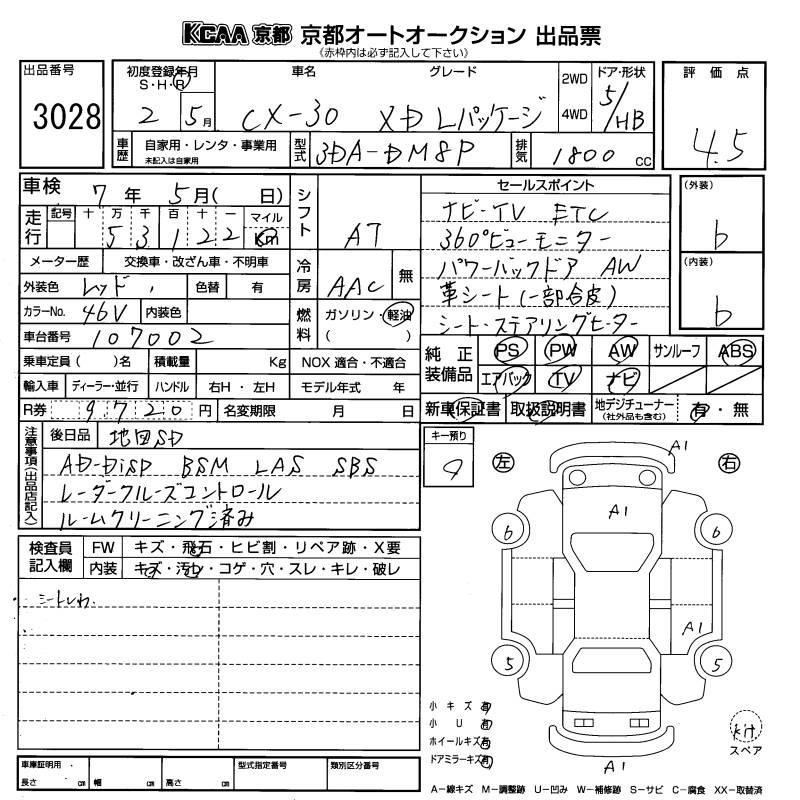 KCAA 京都 京都オートオークション 出品票
《赤枠内は必ず記入して下さい》
出品番号 3028
初度登録年月 S・H・R 2 5月
車名 CX-30
グレード XD Lパッケージ
2WD 4WD
ドア・形状 5/HB
評価点 4.5
車歴 自家用・レンタ・事業用 未記入は自家用
型式 3DA-DM8P
排気 1800 cc
車検 7年 5月( 日)
走行 記号 十 万 千 百 十 一 マイル
5 3 1 2 2 Km
シフト AT
メーター歴 交換車・改ざん車・不明車
外装色 レッド 色替 有
冷房 AAC 無
カラーNo. 46V 内装色
車台番号 107002
燃料 ガソリン・軽油 ( )
乗車定員 ( )名 積載量 Kg NOX 適合・不適合
輸入車 ディーラー・並行 ハンドル 右H・左H モデル年式 年
R券 9720円 名変期限 月 日
セールスポイント
ナビ・TV ETC
360°ビューモニター
パワーバックドア AW
革シート(一部合皮)
シート・ステアリングヒーター
(外装) b
(内装) b
純正装備品 PS PW AW サンルーフ ABS
エアバック TV ナビ
新車保証書 取扱説明書 地デジチューナー (社外品も含む) 有・無
注意事項(出品店記入)
後日品 地図SD
AD-DISP BSM LAS SBS
レーダークルーズコントロール
ルームクリーニング済み
キー預り
左 右
A1
A1
6 6
A1
5 5
A1
検査員記入欄 FW キズ・飛石・ヒビ割・リペア跡・X要
内装 キズ・汚レ・コゲ・穴・スレ・キレ・破レ
シートしわ
小キズ 有
小U 有
ホイールキズ 有
ドアミラーキズ 有
kit
スペア
車庫証明用 長さ cm 幅 cm 高さ cm 型式指定番号 類別区分番号
A−線キズ M−調整跡 U−凹み W−補修跡 S−サビ C−腐食 XX−取替済